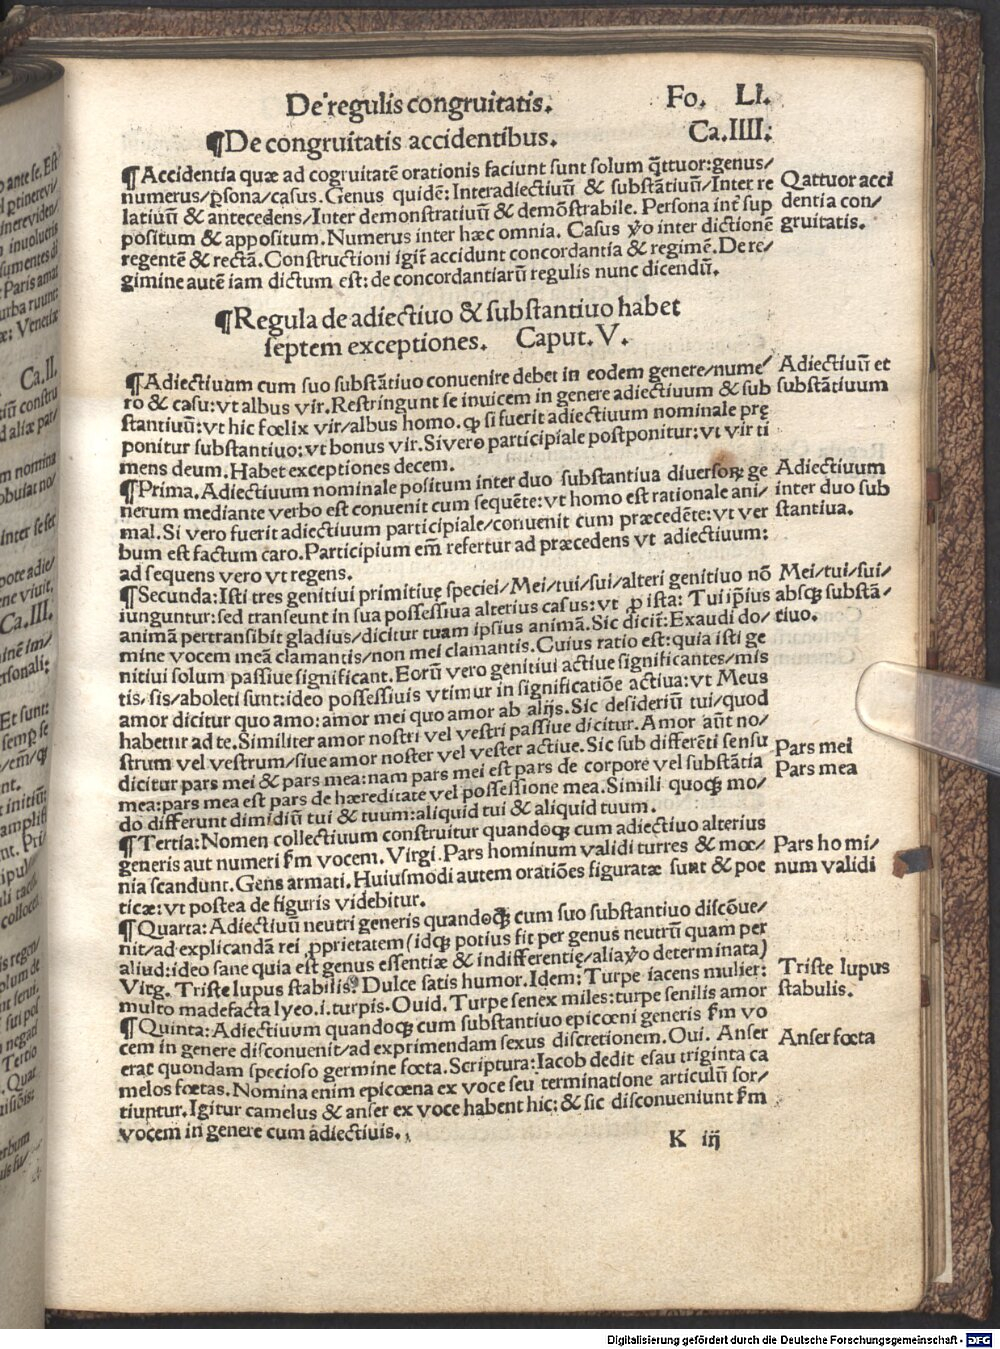 De regulis congruitatis. Fo. LI.
¶De congruitatis accidentibus. Ca.IIII:
¶Accidentia quæ ad cogruitatē orationis faciunt sunt solum q̄ttuor:genus/
numerus/ꝑsona/casus.Genus quidē: Interadiectiuū & substātiuū/Inter re
latiuū & antecedens/Inter demonstratiuū & demōstrabile. Persona int̄ sup
positum & appositum.Numerus inter hæc omnia. Casus ꝟo inter dictionē
regentē & rectā.Constructioni igit̄ accidunt concordantia & regimē.De re/
gimine autē iam dictum est: de concordantiarū regulis nunc dicendū.
Qattuor acci
dentia con/
gruitatis.
¶Regula de adiectiuo & substantiuo habet
septem exceptiones. Caput.V.
¶Adiectiuum cum suo substātiuo conuenire debet in eodem genere/nume/
ro & casu:vt albus vir.Restringunt se inuicem in genere adiectiuum & sub
stantiuū:vt hic fœlix vir/albus homo.ꝙ si fuerit adiectiuum nominale prę
ponitur substantiuo:vt bonus vir.Sivero participiale postponitur:vt vir ti
mens deum.Habet exceptiones decem.
Adiectiuū et
substātiuum
¶Prima.Adiectiuum nominale positum inter duo substantiua diuersoꝝ ge
nerum mediante verbo est conuenit cum sequēte:vt homo est rationale ani/
mal.Si vero fuerit adiectiuum participiale/conuenit cum præcedēte:vt ver
bum est factum caro.Participium em̄ refertur ad præcedens vt adiectiuum:
ad sequens vero vt regens.
Adiectiuum
inter duo sub
stantiua.
¶Secunda:Isti tres genitiui primitiuę speciei/Mei/tui/sui/alteri genitiuo nō
iunguntur:sed transeunt in sua possessiua alterius casus:vt ꝑ ista: Tui ip̄ius
animā pertransibit gladius/dicitur tuam ipsius animā.Sic dicit̄:Exaudi do/
mine vocem meā clamantis/non mei clamantis.Cuius ratio est:quia isti ge
nitiui solum passiue significant.Eorū vero genitiui actiue significantes/mis
tis/sis/aboleti sunt:ideo possessiuis vtimur in significatiōe actiua:vt Meus
amor dicitur quo amo:amor mei quo amor ab alijs.Sic desideriū tui/quod
habetur ad te.Similiter amor nostri vel vestri passiue dicitur.Amor aūt no/
strum vel vestrum/siue amor noster vel vester actiue.Sic sub differēti sensu
dicitur pars mei & pars mea:nam pars mei est pars de corpore vel substātia
mea:pars mea est pars de hæreditate vel possessione mea.Simili quoqꝫ mo/
do differunt dimidiū tui & tuum:aliquid tui & aliquid tuum.
Mei/tui/sui/
absqꝫ substā/
tiuo.
Pars mei
Pars mea
¶Tertia:Nomen collectiuum construitur quandoqꝫ cum adiectiuo alterius
generis aut numeri ẜm vocem. Virgi.Pars hominum validi turres & mœ/
nia scandunt.Gens armati.Huiusmodi autem oratiōes figuratæ sunt & poe
ticæ:vt postea de figuris videbitur.
Pars homi/
num validi
¶Quarta:Adiectiuū neutri generis quandoqꝫ cum suo substantiuo discōue/
nit/ad explicandā rei ꝓprietatem(idqꝫ potius fit per genus neutrū quam per
aliud:ideo sane quia est genus essentiæ & indifferentię/alia ꝟo determinata)
Virg. Triste lupus stabilis? Dulce satis humor.Idem:Turpe iacens mulier:
multo madefacta lyeo.i.turpis.Ouid.Turpe senex miles:turpe senilis amor
Triste lupus
stabulis.
¶Quinta:Adiectiuum quandoqꝫ cum substantiuo epicœni generis ẜm vo
cem in genere disconuenit/ad exprimendam sexus discretionem.Oui. Anser
erat quondam specioso germine fœta.Scriptura:Iacob dedit esau triginta ca
melos fœtas.Nomina enim epicœna ex voce seu terminatione articulū sor/
tiuntur.Igitur camelus & anser ex voce habent hic:& sic disconueniunt ẜm
vocem in genere cum adiectiuis.
Anser fœta
K iij
Digitalisierung gefördert durch die Deutsche Forschungsgemeinschaft - DFG